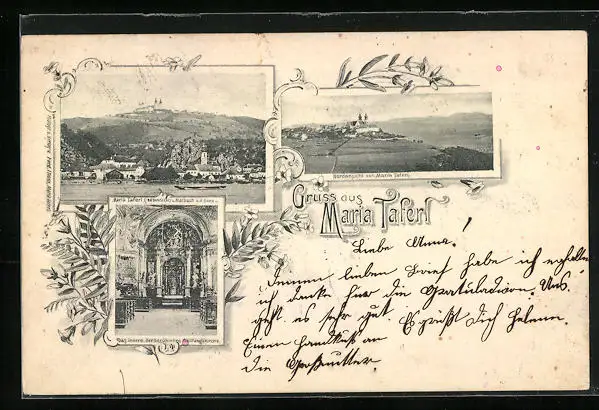 Maria Taferl
Nordansicht von Maria Taferl
Gruss aus
Maria Taferl
Liebe Anna!
Deinen lieben Brief habe ich erhalten
ich danke für die Gratulation. Uns
geht es sehr gut. Es grüßt Dich Helene
Einen Handkuß an
die Großmutter.
Das Innere der berühmten Wallfahrtskirche